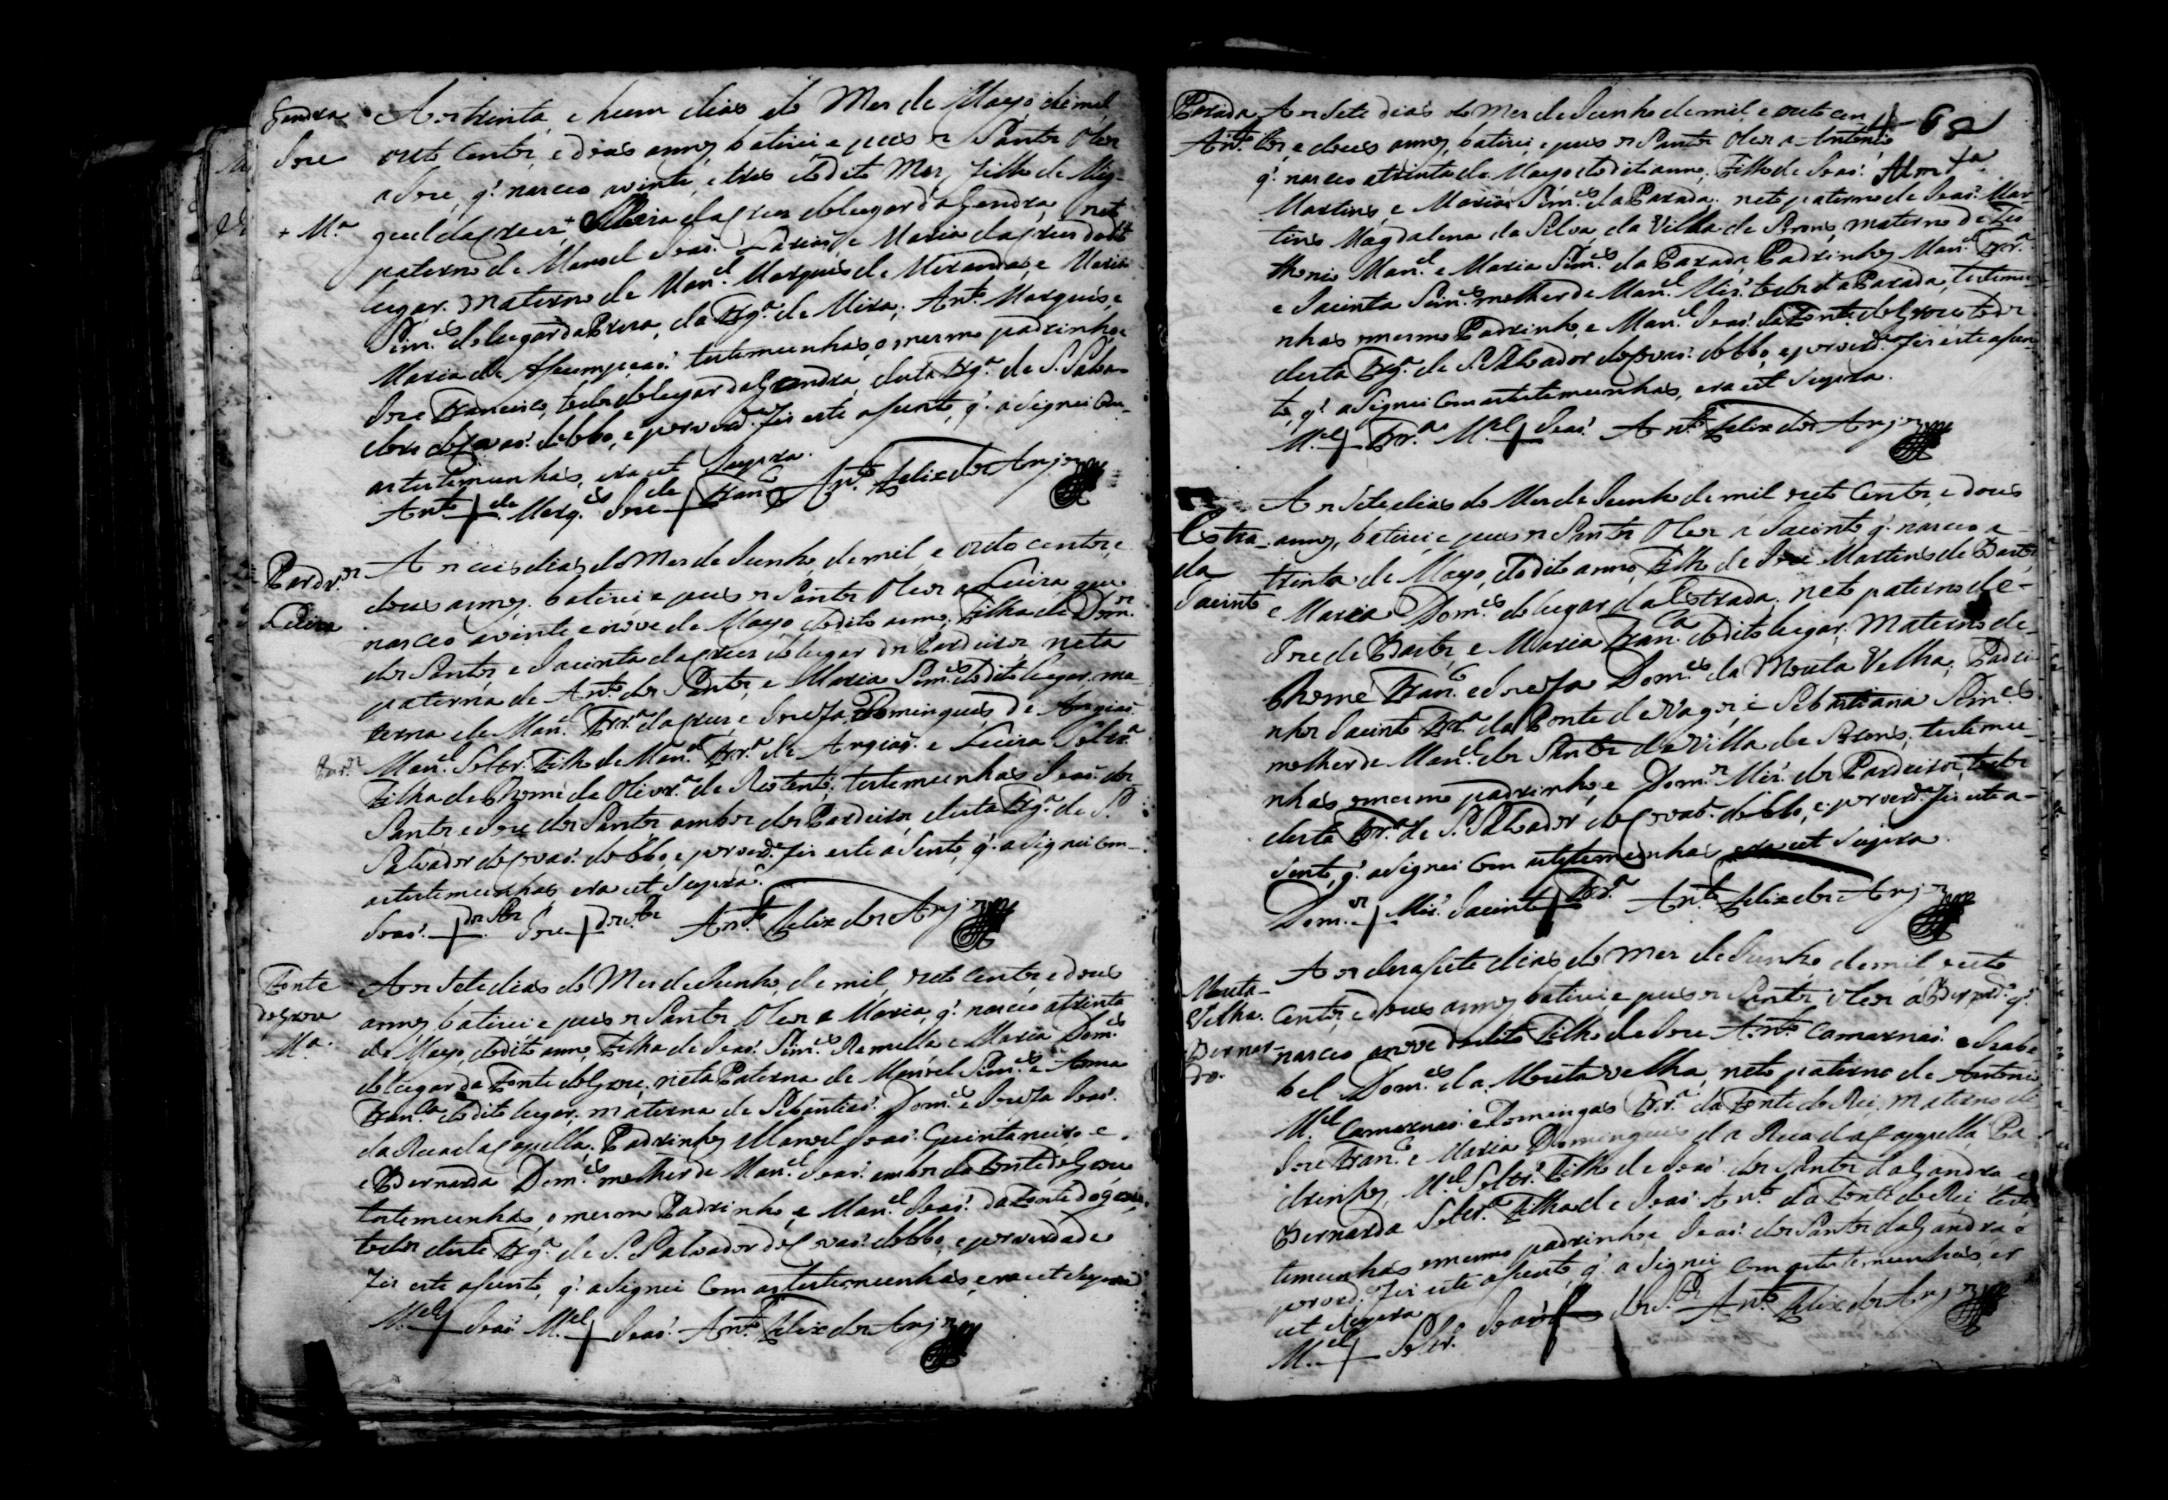 Gandra
Joze
+ M.ª
Aos trinta, e hum dias do Mes de Mayo de mil
outo centos, e dous annos, batizei e pus os Santos Oleos
a Joze, q̃. nasceo a vinte, e tres do dito Mes, Filho de Mig-
guel da Cruz, + Maria da Cruz do lugar da Gandra, neto
paterno de Manoel Joaõ e Maria da Cruz do dito
lugar. materno de Man.el Marques de Miranda, e Maria
Sim.es do lugar da, da Frg.ª de Mira; Ant.º Marques, e
Maria de Assumpçaõ. testemunhas, o mesmo padrinho, e
Joze Francisco, todos do lugar da Gandra, desta Frg.ª de S. Salva-
dor de Covaõ. do Lobo, e por verd.e fis este asento, q̃. asignei Com
as testemunhas, era ut supra.
Ant.º + de Marq.es Joze + de Fran.co Ant.º Felix dos Anjos
Pardr.os
Luiza
Aos seis dias do Mes de Junho, de mil, e outo centos e
dous annos. batizei e pus os Santos Oleos a Luiza, que
nasceo a vinte e nove de Mayo, do dito anno. Filha de Dom.os
dos Santos, e Jacinta da Cruz do lugar dos Pardeiros, neta
paterna de Ant.º dos Santos, e Maria Sim.es do dito lugar. ma
terna de Man.el Frr.ª da Cruz, e Josefa Domingues de Angiaõ.
Man.el Soltr.º Filho de Man.el Frr.ª de Angiaõ. e Luiza Soltr.ª
Filha de Thome de Olivr.ª de; testemunhas Joaõ. dos
Santos e Joze dos Santos ambos dos Pardeiros, desta Frg.ª de S.
Salvador de Covaõ. do Lobo, e por verd.e fis este asento, q̃. asignei Com
as testemunhas, era ut supra.
Joaõ. + dos S.tos Joze + dos S.tos Ant.º Felix dos Anjos
Fonte
do Grou
M.ª
Aos sete dias do Mes de Junho, de mil, outo centos, e dous
annos, batizei e pus os Santos Oleos a Maria, q̃. nasceo a trinta
de Mayo, do dito anno, Filha de Joaõ. Sim.es Ramella e Maria Dom.es
do lugar da Fonte do Grou. neta Paterna de Manoel Sim.es e Anna
Fran.ca do dito lugar. materna de Sebastiaõ. Dom.es e Josefa Joaõ.
da Rua da Capella; Padrinhos Manoel Joaõ. Quintaneiro e
Bernarda Dom.es molher de Man.el Joaõ. ambos da Fonte do Grou
testemunhas, o mesmo Padrinho, e Man.el Joaõ. da Fonte do Grou,
todos desta Frg.ª de S. Salvador de Covaõ. do Lobo, e por verdade
fis este asento, q̃. asignei Com as testemunhas, era ut supra
M.el + Joaõ. M.el + Joaõ. Ant.º Felix dos Anjos
Parada
Ant.º
62
Aos sete dias do Mes de Junho de mil, e outo cen
tos, e dous annos, batizei, e pus os Santos Oleos a Antonio
q̃. nasceo a trinta de Mayo do dito anno, Filho de Joaõ.
Martins, e Maria Sim.es da Parada, neto paterno de Joaõ. Mar
tins Magdalena da Silva, da Villa de Soms, materno de
Man.el e Maria Sim.es da Parada, Padrinhos Man.el Frr.ª
e Jacinta Sim.es molher de Man.el Miz. todos da Parada, testemu
nhas o mesmo Padrinho, e Man.el Joaõ. da Fonte do Grou todos
desta Frg.ª de S. Salvador de Covaõ. do Lobo, e por verd.e fis este asen
to, q̃. asignei Com as testemunhas, era ut supra.
M.el + Frr.ª M.el + Joaõ. Ant.º Felix dos Anjos
Estra
da
Jacinto
Aos sete dias do Mes de Junho de mil outo Centos, e dous
annos, batizei e pus os Santos Oleos a Jacinto, q̃. nasceo a
trinta de Mayo, do dito anno, Filho de Joze Martins de Bastos
e Maria Dom.es do lugar da Estrada. neto paterno de
Joze de Bastos, e Maria Fran.ca do dito lugar. Materno de
Thome Fran.co e Josefa Dom.es da Mouta Velha; Padri
nhos Jacinto Frr.ª da Ponte de Vagos, e Sebastiana Sim.es
molher de Man.el dos Santos da Villa de Soms; testemu
nhas o mesmo padrinho, e Dom.os Miz. dos Pardeiros, todos
desta Frg.ª de S. Salvador de Covaõ. do Lobo, e por verd.e fis este a
sento, q̃. asignei Com as testemunhas era ut supra.
Dom.os + Miz. Jacinto + Frr.ª Ant.º Felix dos Anjos
Mouta
Velha.
Bernar
do.
Aos desasete dias do Mes de Junho de mil outo
Centos, e dous annos, batizei e pus os Santos Oleos a Bernd.º q̃.
nasceo a nove do dito Filho de Joze Ant.º Camarnaõ. e Isabe
bel Dom.es da Mouta velha, neto paterno de Antonio
M.el Camarnaõ. e Domingas Frr.ª da Fonte do Rei, Materno de
Joze Fran.co e Maria Domingues da Rua da Cappella Pa
drinhos, M.el Soltr.º Filho de Joaõ. dos Santos da Gandra e
Bernarda Soltr.ª Filha de Joaõ. Ant.º da Fonte do Rei tes
temunhas o mesmo padrinho e Joaõ. dos Santos da Gandra e
por verd.e fis este asento, q̃. asignei Com as testemunhas, er
ut supra
M.el + Soltr.º Joaõ + dos S.tos Ant.º Felix dos Anjos